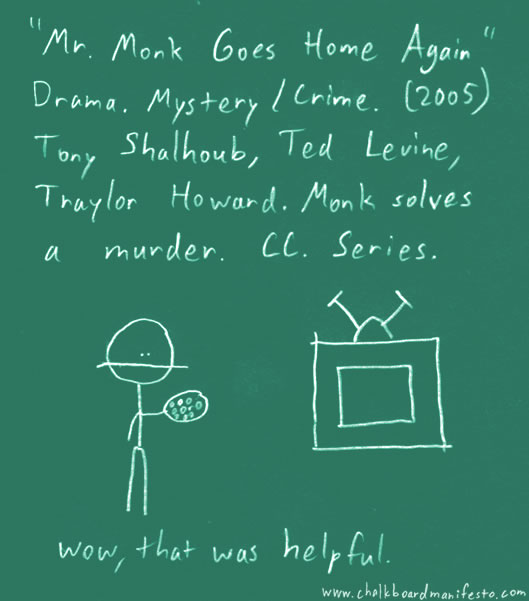 "Mr. Monk Goes Home Again"
Drama. Mystery/Crime. (2005)
Tony Shalhoub, Ted Levine,
Traylor Howard. Monk solves
a murder. CC. Series.
wow, that was helpful.
www.chalkboardmanifesto.com